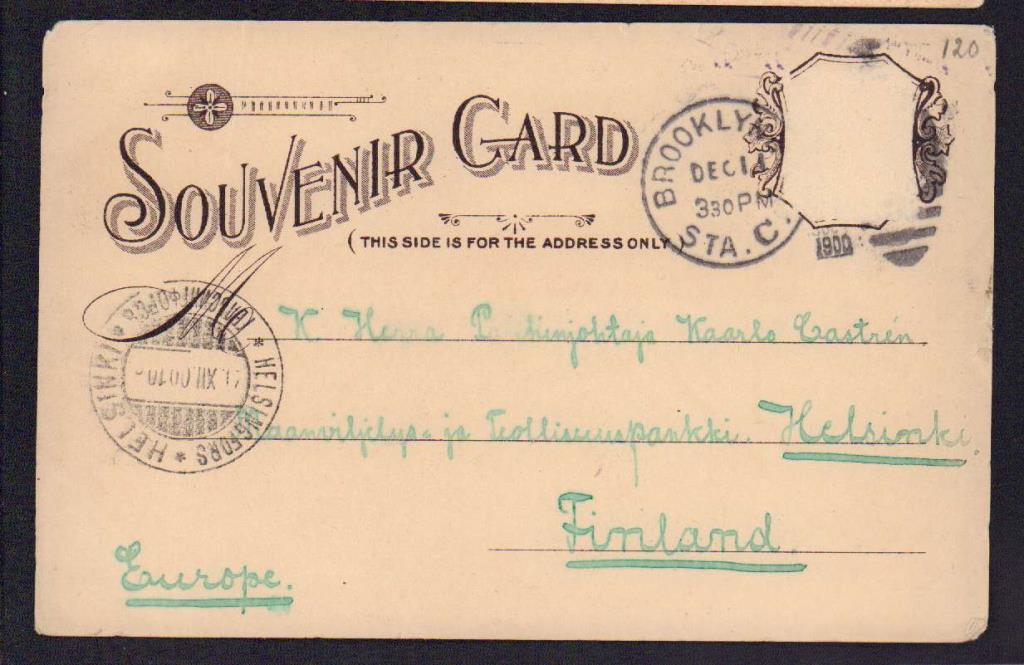 120
SOUVENIR CARD
(THIS SIDE IS FOR THE ADDRESS ONLY)
BROOKLYN
DEC 14
330 PM
STA. C.
1900
K Herra Pankinjohtaja Kaarlo Castrén.
Maanviljelys- ja Teollisuuspankki. Helsinki
Finland.
Europe.
HELSINKI * HELSINGFORS *
XII.00.10